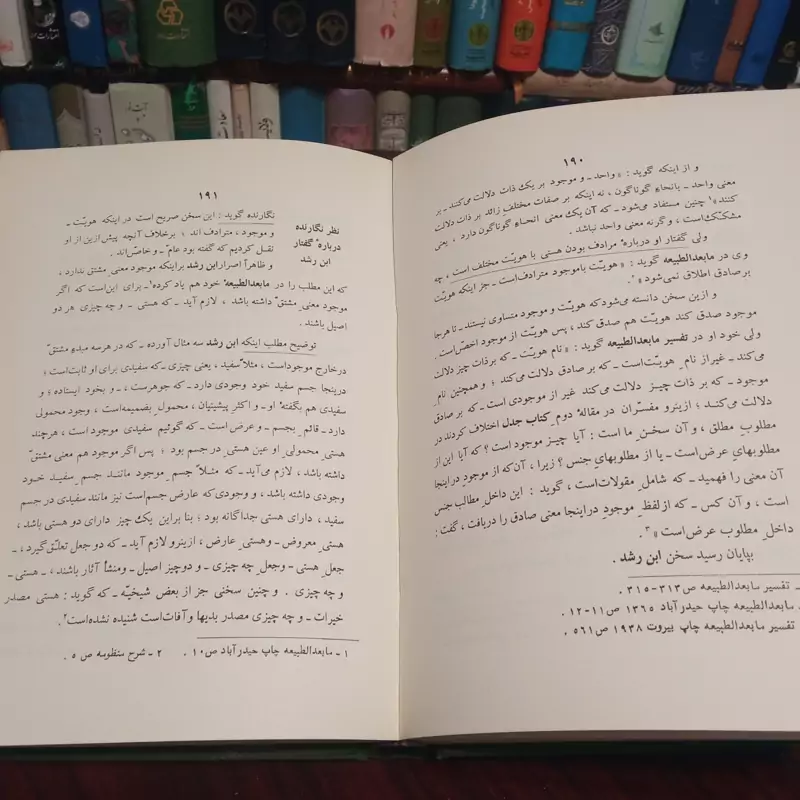 ۱۹۰
و از اینکه گوید : «واحد ـ و موجود بر یک ذات دلالت می‌کنند ـ
معنی واحد ـ بانحاءِ گوناگون ، نه اینکه بر صفات مختلفِ زائد بر ذات دلالت
کنند»۱ چنین مستفاد می‌شود ـ که آن یک معنی انحاءِ گوناگون دارد ، یعنی
مشکک است ، و گرنه معنی واحد نباشد .
ولی گفتار او دربارهٔ مرادف بودن هستی با هویّت مختلف است ، چه
وی در مابعدالطبیعه گوید : «هویّت باموجود مترادف‌است ـ جز اینکه هویّت
برصادق اطلاق نمی‌شود»۲.
و ازین سخن دانسته می‌شود که هویّت و موجود متساوی نیستند ـ تا هرجا
موجود صدق کند هویّت هم صدق کند ، پس هویّت از موجود اخصّ‌است .
ولی خود او در تفسیر مابعدالطبیعه گوید : «نام هویّت ـ که برذات چیز دلالت
می‌کند ـ غیراز نام ِ هویّت‌است ـ که بر صادق دلالت می‌کند ؛ و همچنین نام ِ
موجود ـ که بر ذات چیـز دلالت می‌کند غیر از موجودی است ـ که بر صادق
دلالت می‌کنـد ؛ ازینرو مفسّران در مقاله ٔ دوم ِ کتاب جدل اختلاف کردند در
مطلوبِ مطلق ، و آن سخن ِ ما است : آیا چیـز موجود است ؟ که آیا این از
مطلوبهایِ عرض‌است ـ یا از مطلوبهایِ جنس ؟ زیرا ، آن‌که از موجودِ دراینجا
آن معنی را فهمید ـ که شامل ِ مقولات‌است ، گوید : این داخل ِ مطالب جنس
است ، و آن کس ـ که ازلفظ ِ موجودِ دراینجا معنی صادق را دریافت ، گفت :
داخل ِ مطلوب عرض‌است»۳.
بپایان رسید سخن ابن رشد .
ـ تفسیر مابعدالطبیعه ص۳۱۳-۳۱۵ .
ـ مابعدالطبیعه چاپ حیدرآباد ۱۳۶۵ ص۱۱-۱۲ .
تفسیر مابعدالطبیعه چاپ بیروت ۱۹۳۸ ص۵۶۱ .
۱۹۱
نظر نگارنده
دربارهٔ گفتار
ابن رشد
نگارنده گوید : این سخن صریح است در اینکه هویّت ـ
و موجود ، مترادف اند ، برخلاف آنچه پیش‌ازین از او
نقـل کردیم که گفته بود عامّ ـ و خاصّ‌اند .
و ظاهرآ اصرار ابن رشد براینکه موجود معنی ِ مشتق ندارد ،
که این مطلب را در مابعدالطبیعه ٔ خود هم یاد کرده۱ـ برای این‌است که اگر
موجود معنی ِ مشتقّ داشته باشد ، لازم آید ـ که هستی ـ و چه چیزی هر دو
اصیل باشند .
توضیح مطلب اینکه ابن رشد سه مثال آورده ـ که در هرسه مبدءِ مشتقّ
درخارج موجوداست ، مثلاً سفید ، یعنی چیزی ـ که سفیدی برای او ثابت‌است ؛
دراینجا جسم سفید خود وجودی دارد ـ که جوهرست ، ـ و بخود ایستاده ؛ و
سفیدی هم بگفته ٔ او ـ و اکثرِ پیشینیان ، محمول ِ بضمیمه‌است ، و وجود محمولی
دارد ـ قائم ِ بجسم ـ و عرض است ـ که گوئیم سفیدی موجود است ، هرچند
هستی ِ محمولی ِ او عین ِ هستی ِ در جسم بود ؛ پس اگر موجود هم معنی ِ مشتقّ
داشته باشد ، لازم می‌آید ـ که مثلاً جسم ِ موجود ماننـد جسم ِ سفیـد خـود
وجودی داشته باشد ، و وجودی که عارض جسم‌است نیز مانند سفیدی در جسم
سفید ، دارای هستی جداگانه بود ؛ بنا براین یک چیز دارای دو هستی باشد ،
هستی ِ معروض ـ وهستی ِ عارض ، ازینرو لازم آید ـ که دو جعل تعلّق گیرد ، ـ
جعل ِ هستی ـ وجعل ِ چه چیزی ، و دوچیز اصیل ـ ومنشأ آثار باشند ، ـ هستی ـ
و چه چیزی . و چنین سخنی جز از بعض شیخیّه ـ که گوید : هستی مصدر
خیرات ـ و چه چیزی مصدر بدیها و آفات‌است شنیده نشده‌است۲.
۱ ـ مابعدالطبیعه چاپ حیدرآباد ص۱۰ . ۲ ـ شرح منظومه ص ۵ .